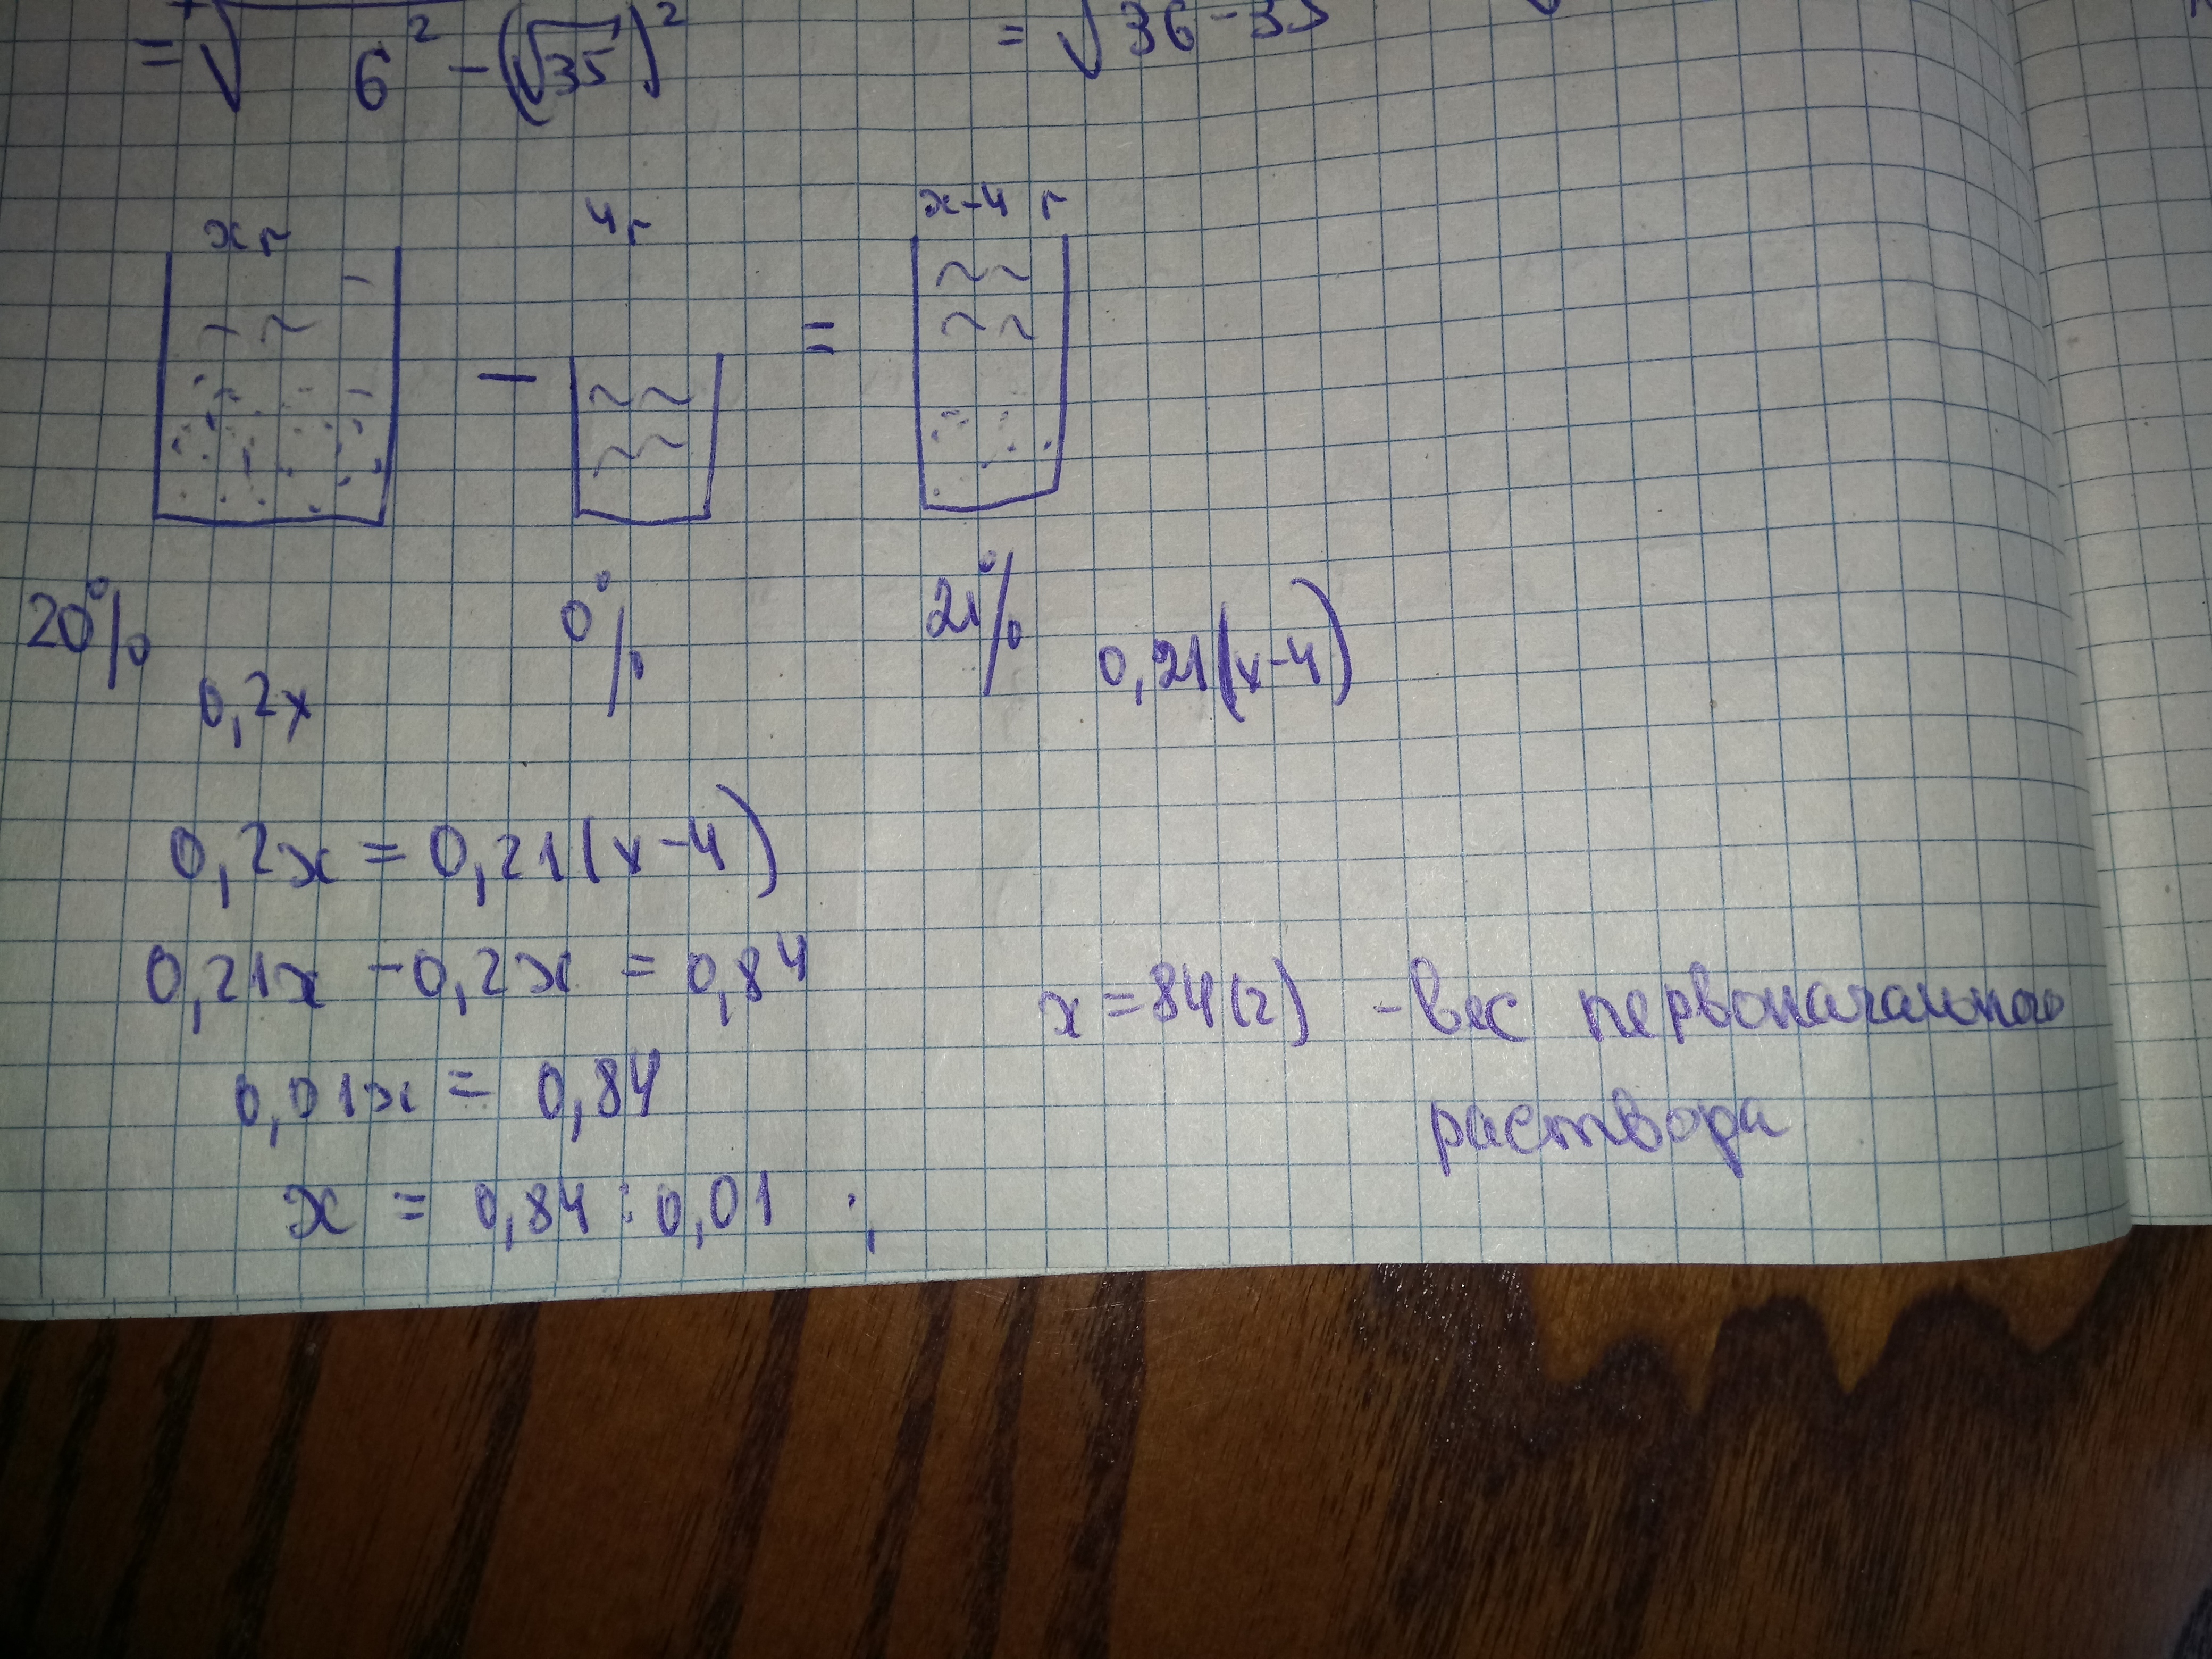 = √ 6² - (√35)² = √36-35
x г 4 г x-4 г
20% 0% 21%
0,2x 0,21(x-4)
0,2x = 0,21(x-4)
0,21x - 0,2x = 0,84
0,01x = 0,84
x = 0,84 : 0,01 ;
x = 84(г) - вес первоначального
раствора